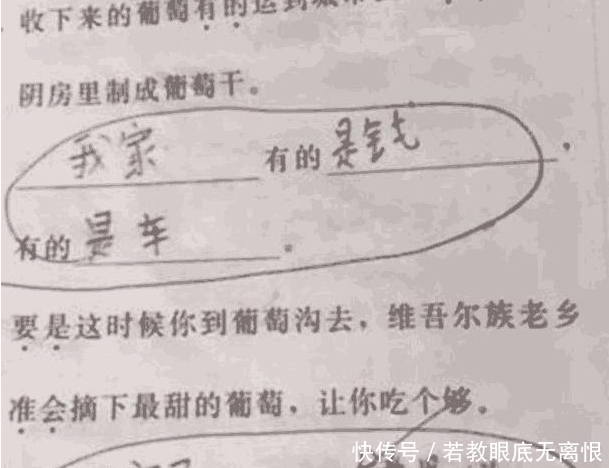 收下来的葡萄有的运到城
阴房里制成葡萄干。
我家有的是钱，
有的是车。
要是这时候你到葡萄沟去，维吾尔族老乡
准会摘下最甜的葡萄，让你吃个够。
快传号/若教眼底无离恨